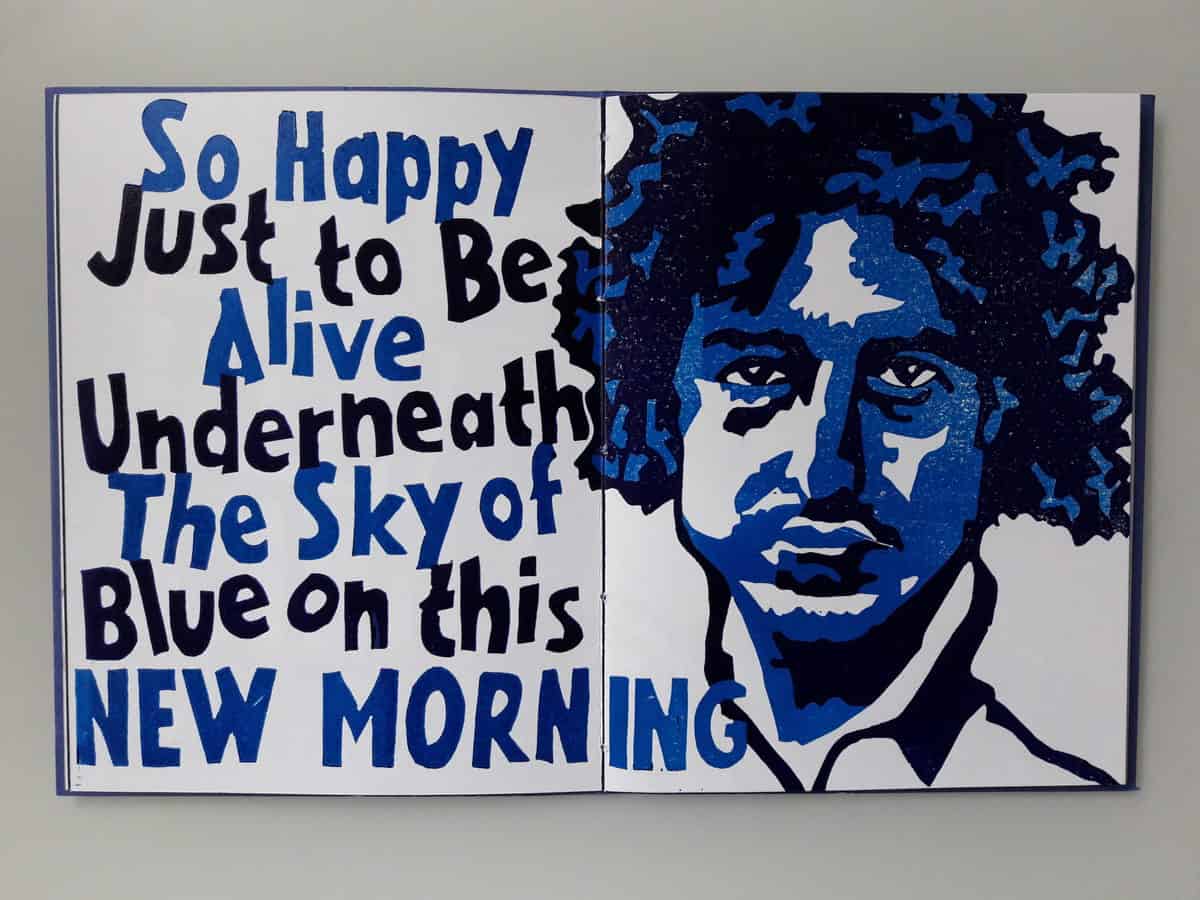 So Happy
Just to Be
Alive
Underneath
The Sky of
Blue on this
NEW MORNING